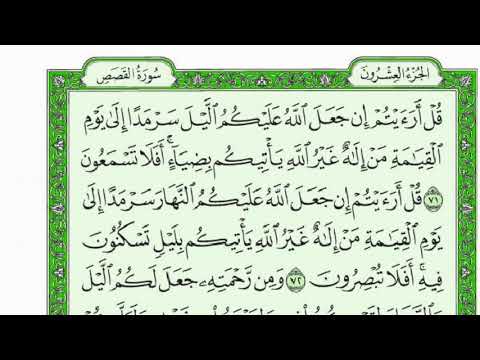 الجُزْءُ العِشْرُونَ
سُورَةُ القَصَصِ
قُلْ أَرَءَيْتُمْ إِن جَعَلَ ٱللَّهُ عَلَيْكُمُ ٱلَّيْلَ سَرْمَدًا إِلَىٰ يَوْمِ
ٱلْقِيَٰمَةِ مَنْ إِلَٰهٌ غَيْرُ ٱللَّهِ يَأْتِيكُم بِضِيَآءٍ ۖ أَفَلَا تَسْمَعُونَ
٧١ قُلْ أَرَءَيْتُمْ إِن جَعَلَ ٱللَّهُ عَلَيْكُمُ ٱلنَّهَارَ سَرْمَدًا إِلَىٰ
يَوْمِ ٱلْقِيَٰمَةِ مَنْ إِلَٰهٌ غَيْرُ ٱللَّهِ يَأْتِيكُم بِلَيْلٍ تَسْكُنُونَ
فِيهِ ۖ أَفَلَا تُبْصِرُونَ ٧٢ وَمِن رَّحْمَتِهِۦ جَعَلَ لَكُمُ ٱلَّيْلَ